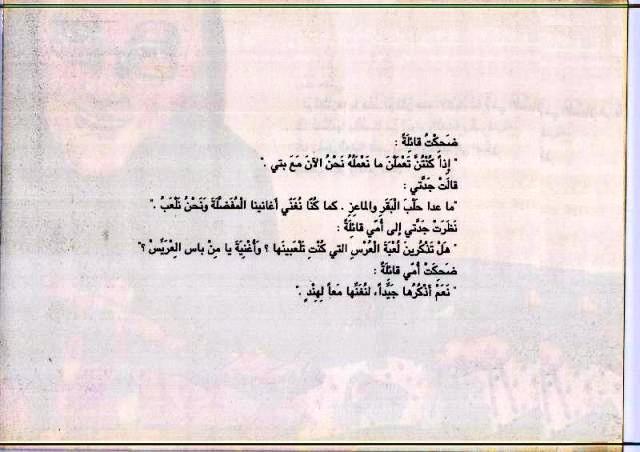 ضَحِكْتُ قائِلَةً :
" إذاً كُنْتُنَّ تَعْمَلْنَ ما نَعْمَلُهُ نَحْنُ الآنَ مَعَ بتي ."
قالَتْ جَدَّتي :
"ما عدا حَلْبَ الْبَقَرِ والماعِزِ . كما كُنَّا نُغَنّي أغانينا الْمُفَضَّلَةَ وَنَحْنُ نَلْعَبُ ."
نَظَرَتْ جَدَّتي إلى أمّي قائِلَةً :
" هَلْ تَذْكُرينَ لُعْبَةَ الْعُرْسِ التي كُنْتِ تَلْعَبينَها ؟ وَأغْنِيَةَ يا مِنْ باس العِرَيِّسْ ؟"
ضَحِكَتْ أمّي قائِلَةً :
" نَعَمْ أذْكُرُها جَيِّداً، لنُغَنِّها مَعاً لِهِنْدٍ ."